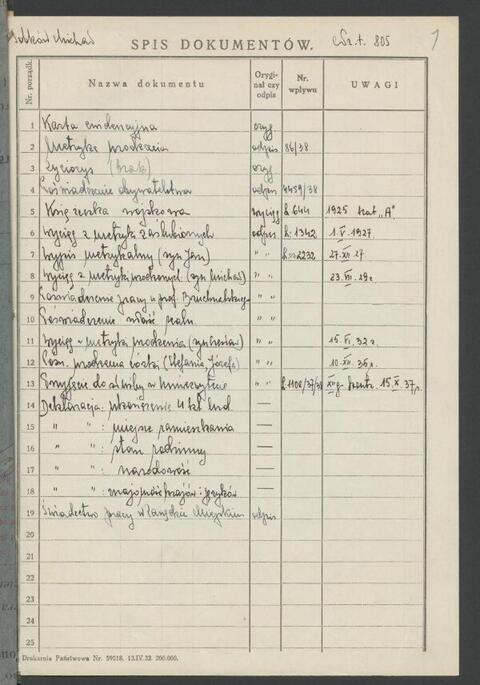 Michał
SPIS DOKUMENTÓW. Sz. t. 805 1
Nr. porządk. Nazwa dokumentu Orygi-nał czy odpis Nr. wpływu UWAGI
1 Karta ewidencyjna oryg
2 Metryka urodzenia odpis 86/38
3 Życiorys (brak) oryg
4 Poświadczenie obywatelstwa odpis 4459/38
5 Książeczka wojskowa wyciąg L 644 1925 kat „A"
6 Wyciąg z metryk zaślubionych odpis L. 1342 1.V.1927.
7 Wypis metrykalny (syn Jan) " " 2232 27.XII.27.
8 Wyciąg z metryk urodzonych (syn Michał) " " 23.VII.29r
9 Poświadczenie pracy u prof. " "
10 Poświadczenie
11 Wyciąg z metryk urodzenia " " 15.VI.32r.
12 urodzenia córki (Stefania, Józefa) " " 10.XII.35r.
13 Przyjęcie do służby w Uniwersytecie " " L 1100/37/38 kontr. 15.X.37r.
14 Deklaracja: ukończenie 4 kl. —
15 " " : miejsce zamieszkania —
16 " " : stan rodzinny —
17 " " : narodowość —
18 " " : znajomość krajów i języków —
19 Świadectwo pracy w Miejskim odpis
20
21
22
23
24
25
Drukarnia Państwowa Nr. 59518. 13.IV.32. 200.000.